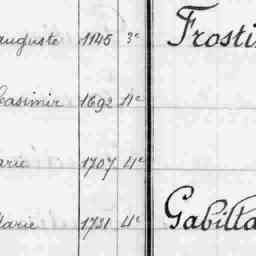 auguste 1145 3e Frosti
Casimir 1692 4e
arie 1707 4e
Marie 1731 4e Gabilla